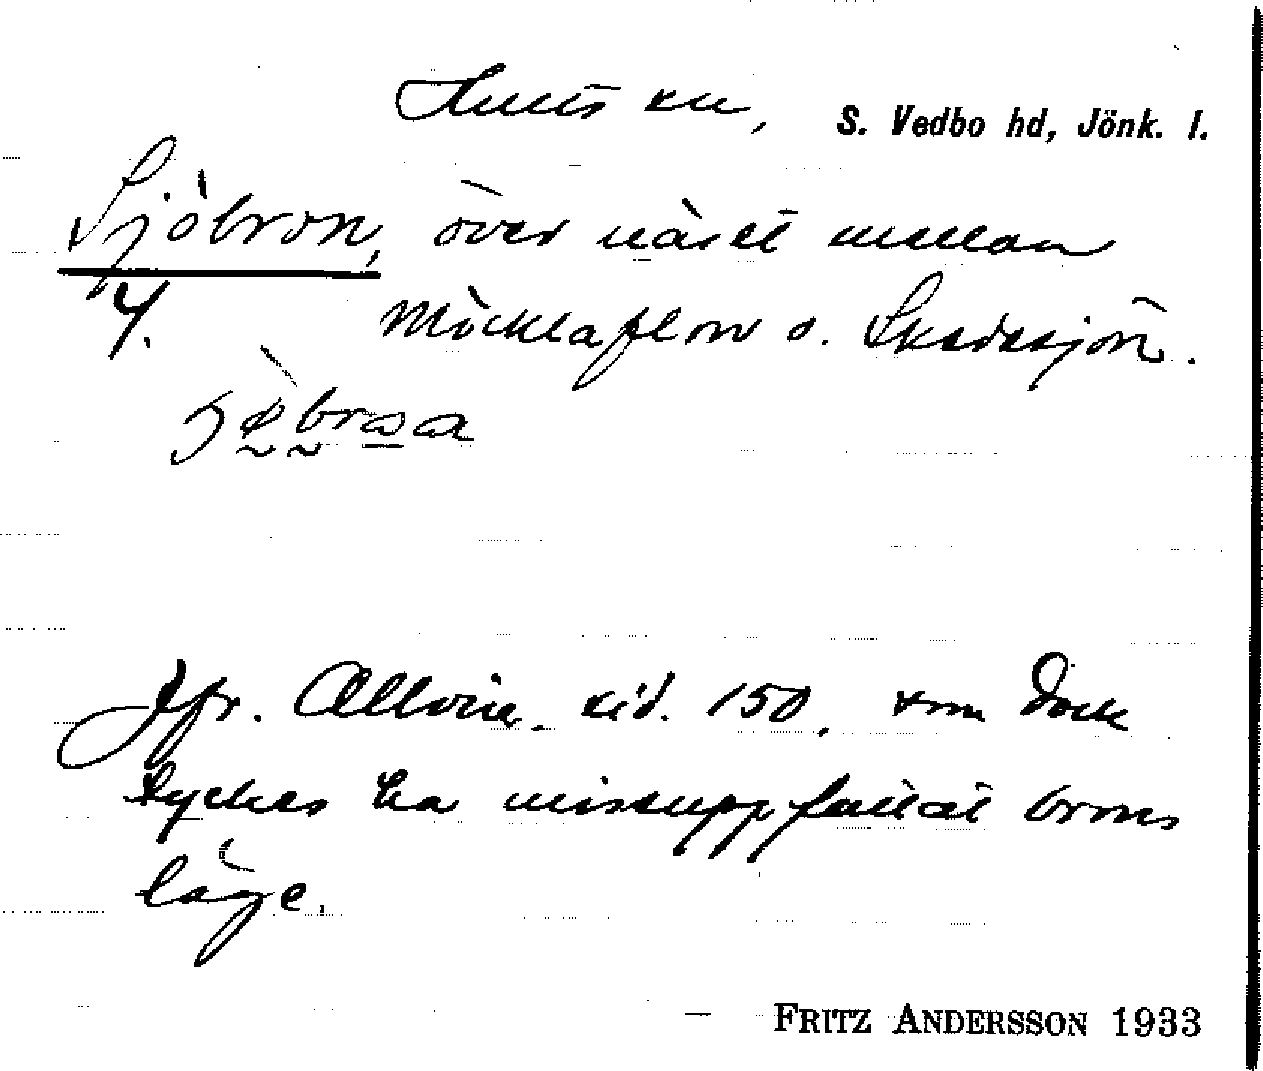 Hults kn, S. Vedbo hd, Jönk. l.
Sjöbron, över näset mellan
4. Möcklaflon o. Skedesjön.
Jfr. Allvin sid. 150, som dock
tyckes ha missuppfattat brons
läge.
FRITZ ANDERSSON 1933